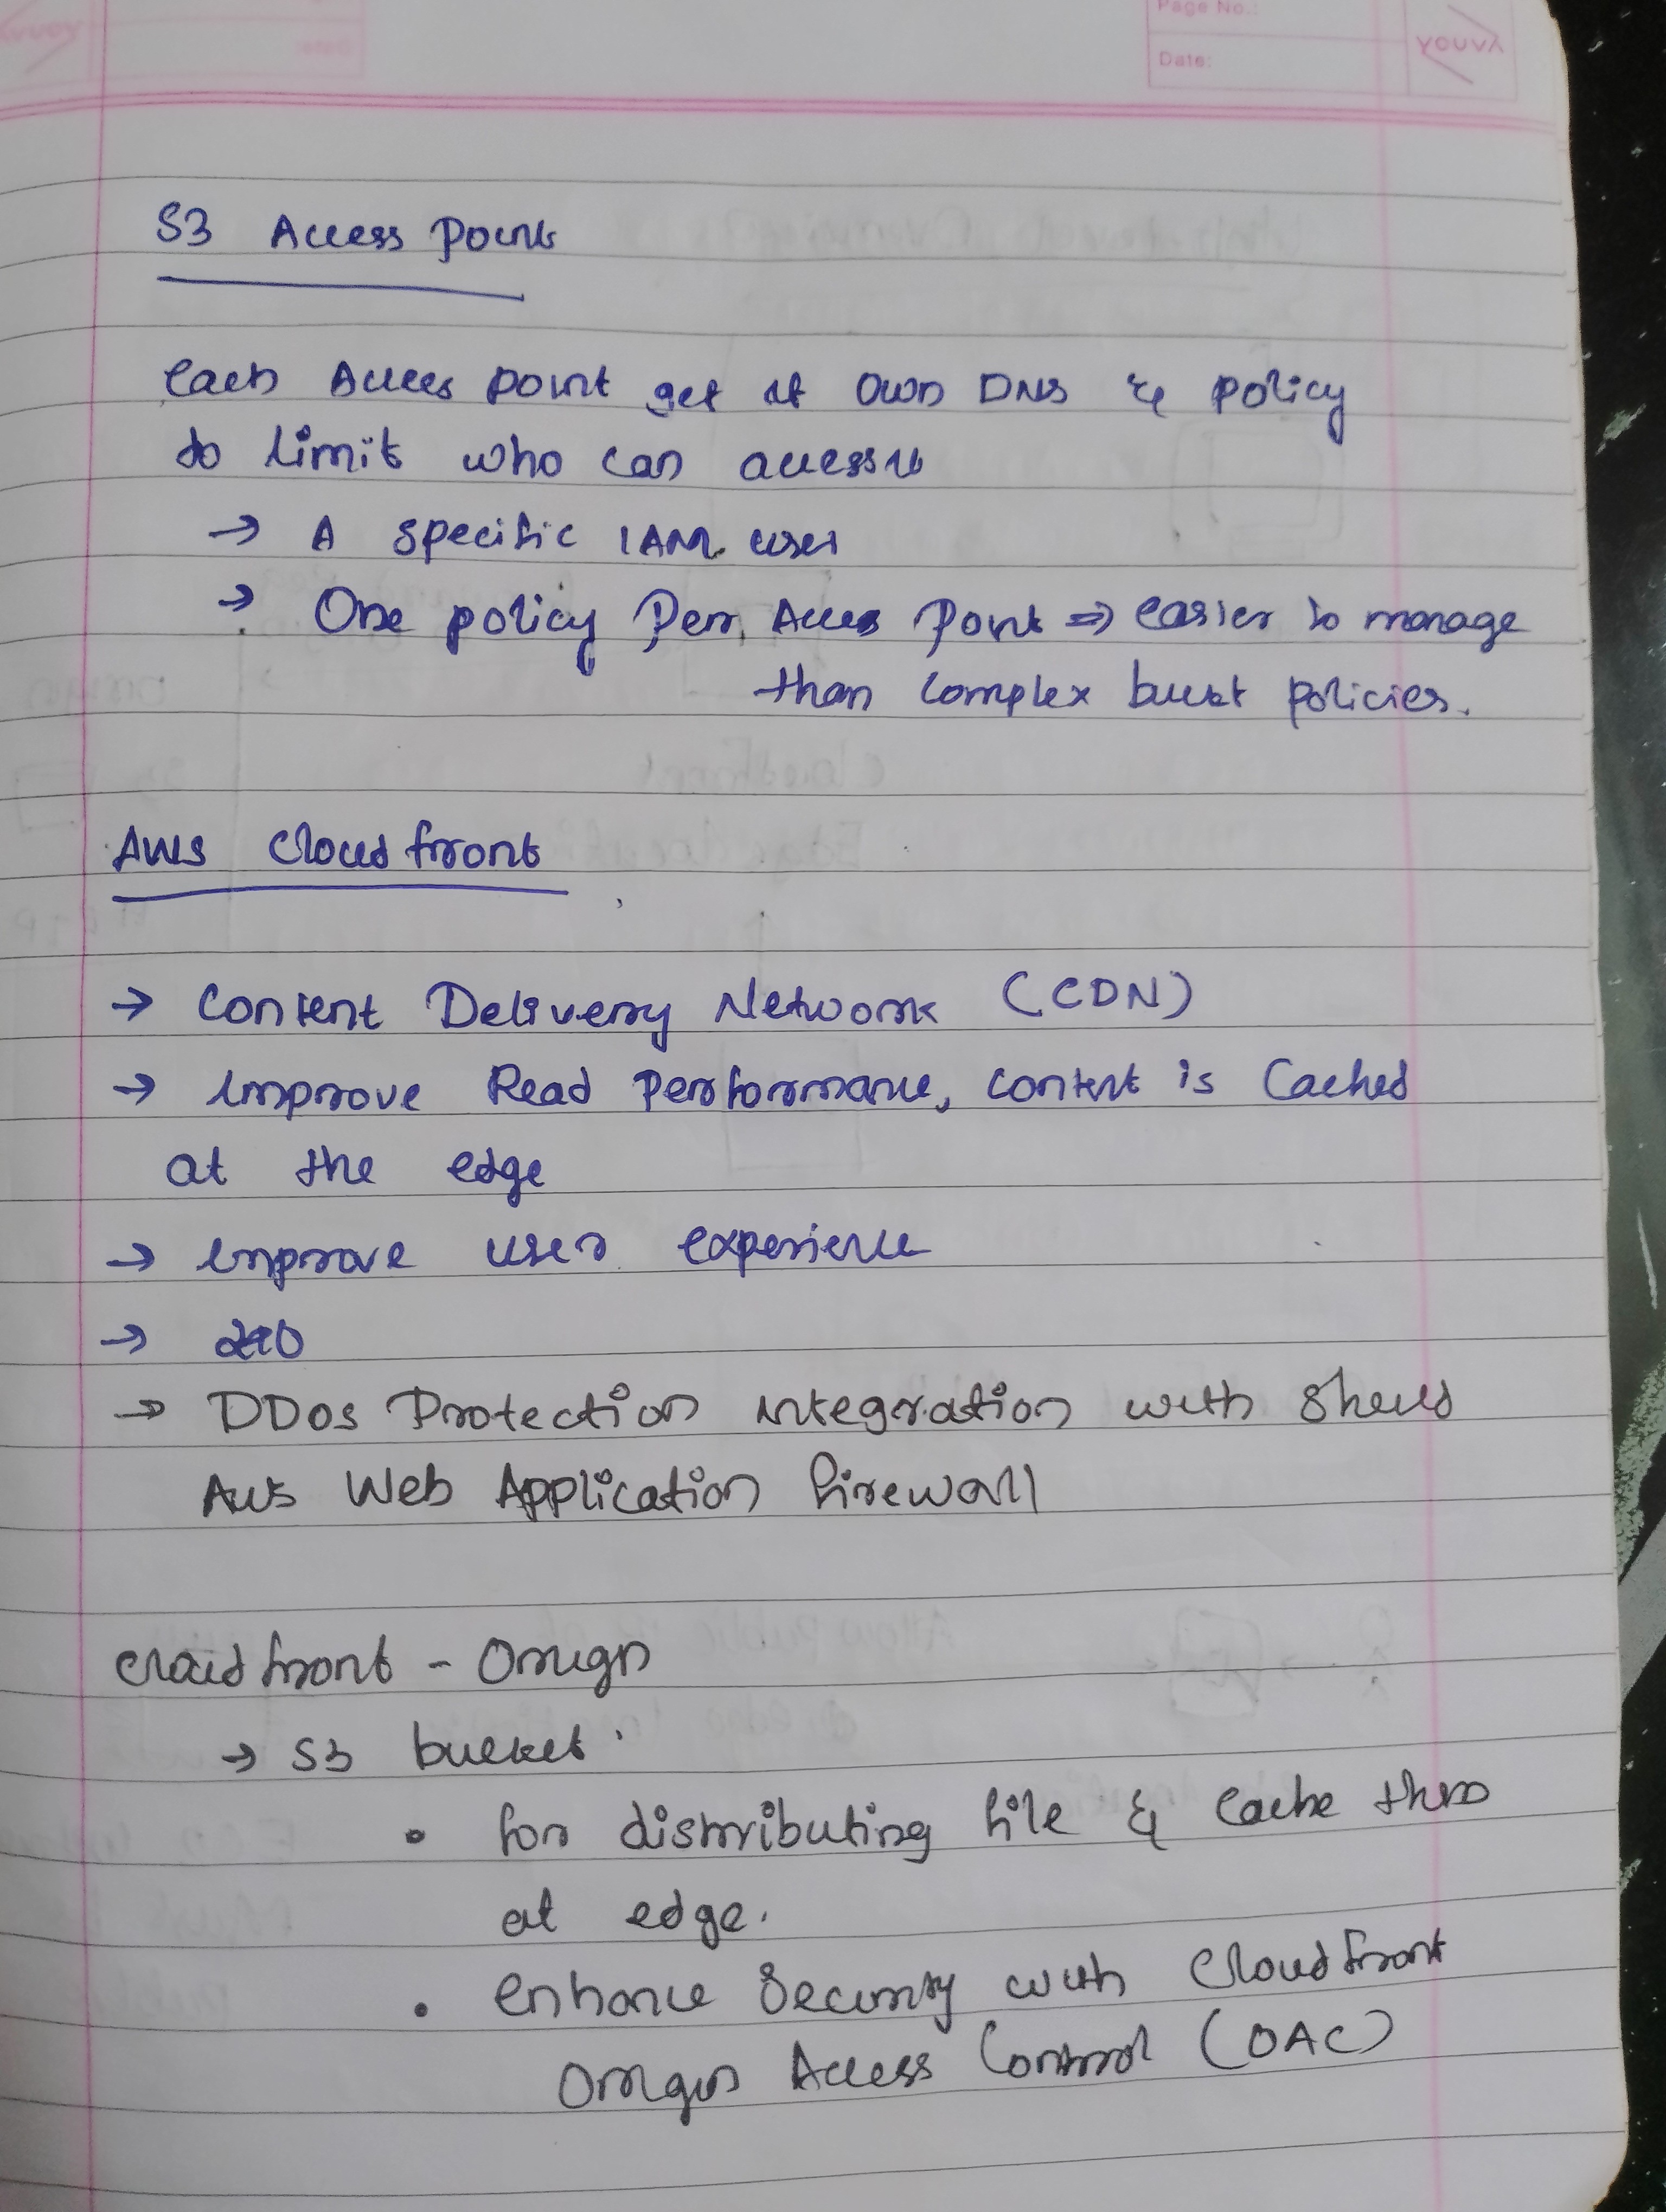 Page No.:
Date:
YOUVA
S3 Access Points
Each Access point get it own DNS & policy
to limit who can access
→ A specific IAM user
→ One policy Per Access Point ⇒ easier to manage
than complex bucket policies.
AWS Cloudfront
→ Content Delivery Network (CDN)
→ Improve Read Performance, content is Cached
at the edge
→ Improve user experience
→
→ DDos Protection integration with Sheild
Aws Web Application firewall
Cloudfront - Origin
→ S3 bucket
• for distributing file & Cache them
at edge.
• enhance Security with Cloudfront
Origin Access Control (OAC)